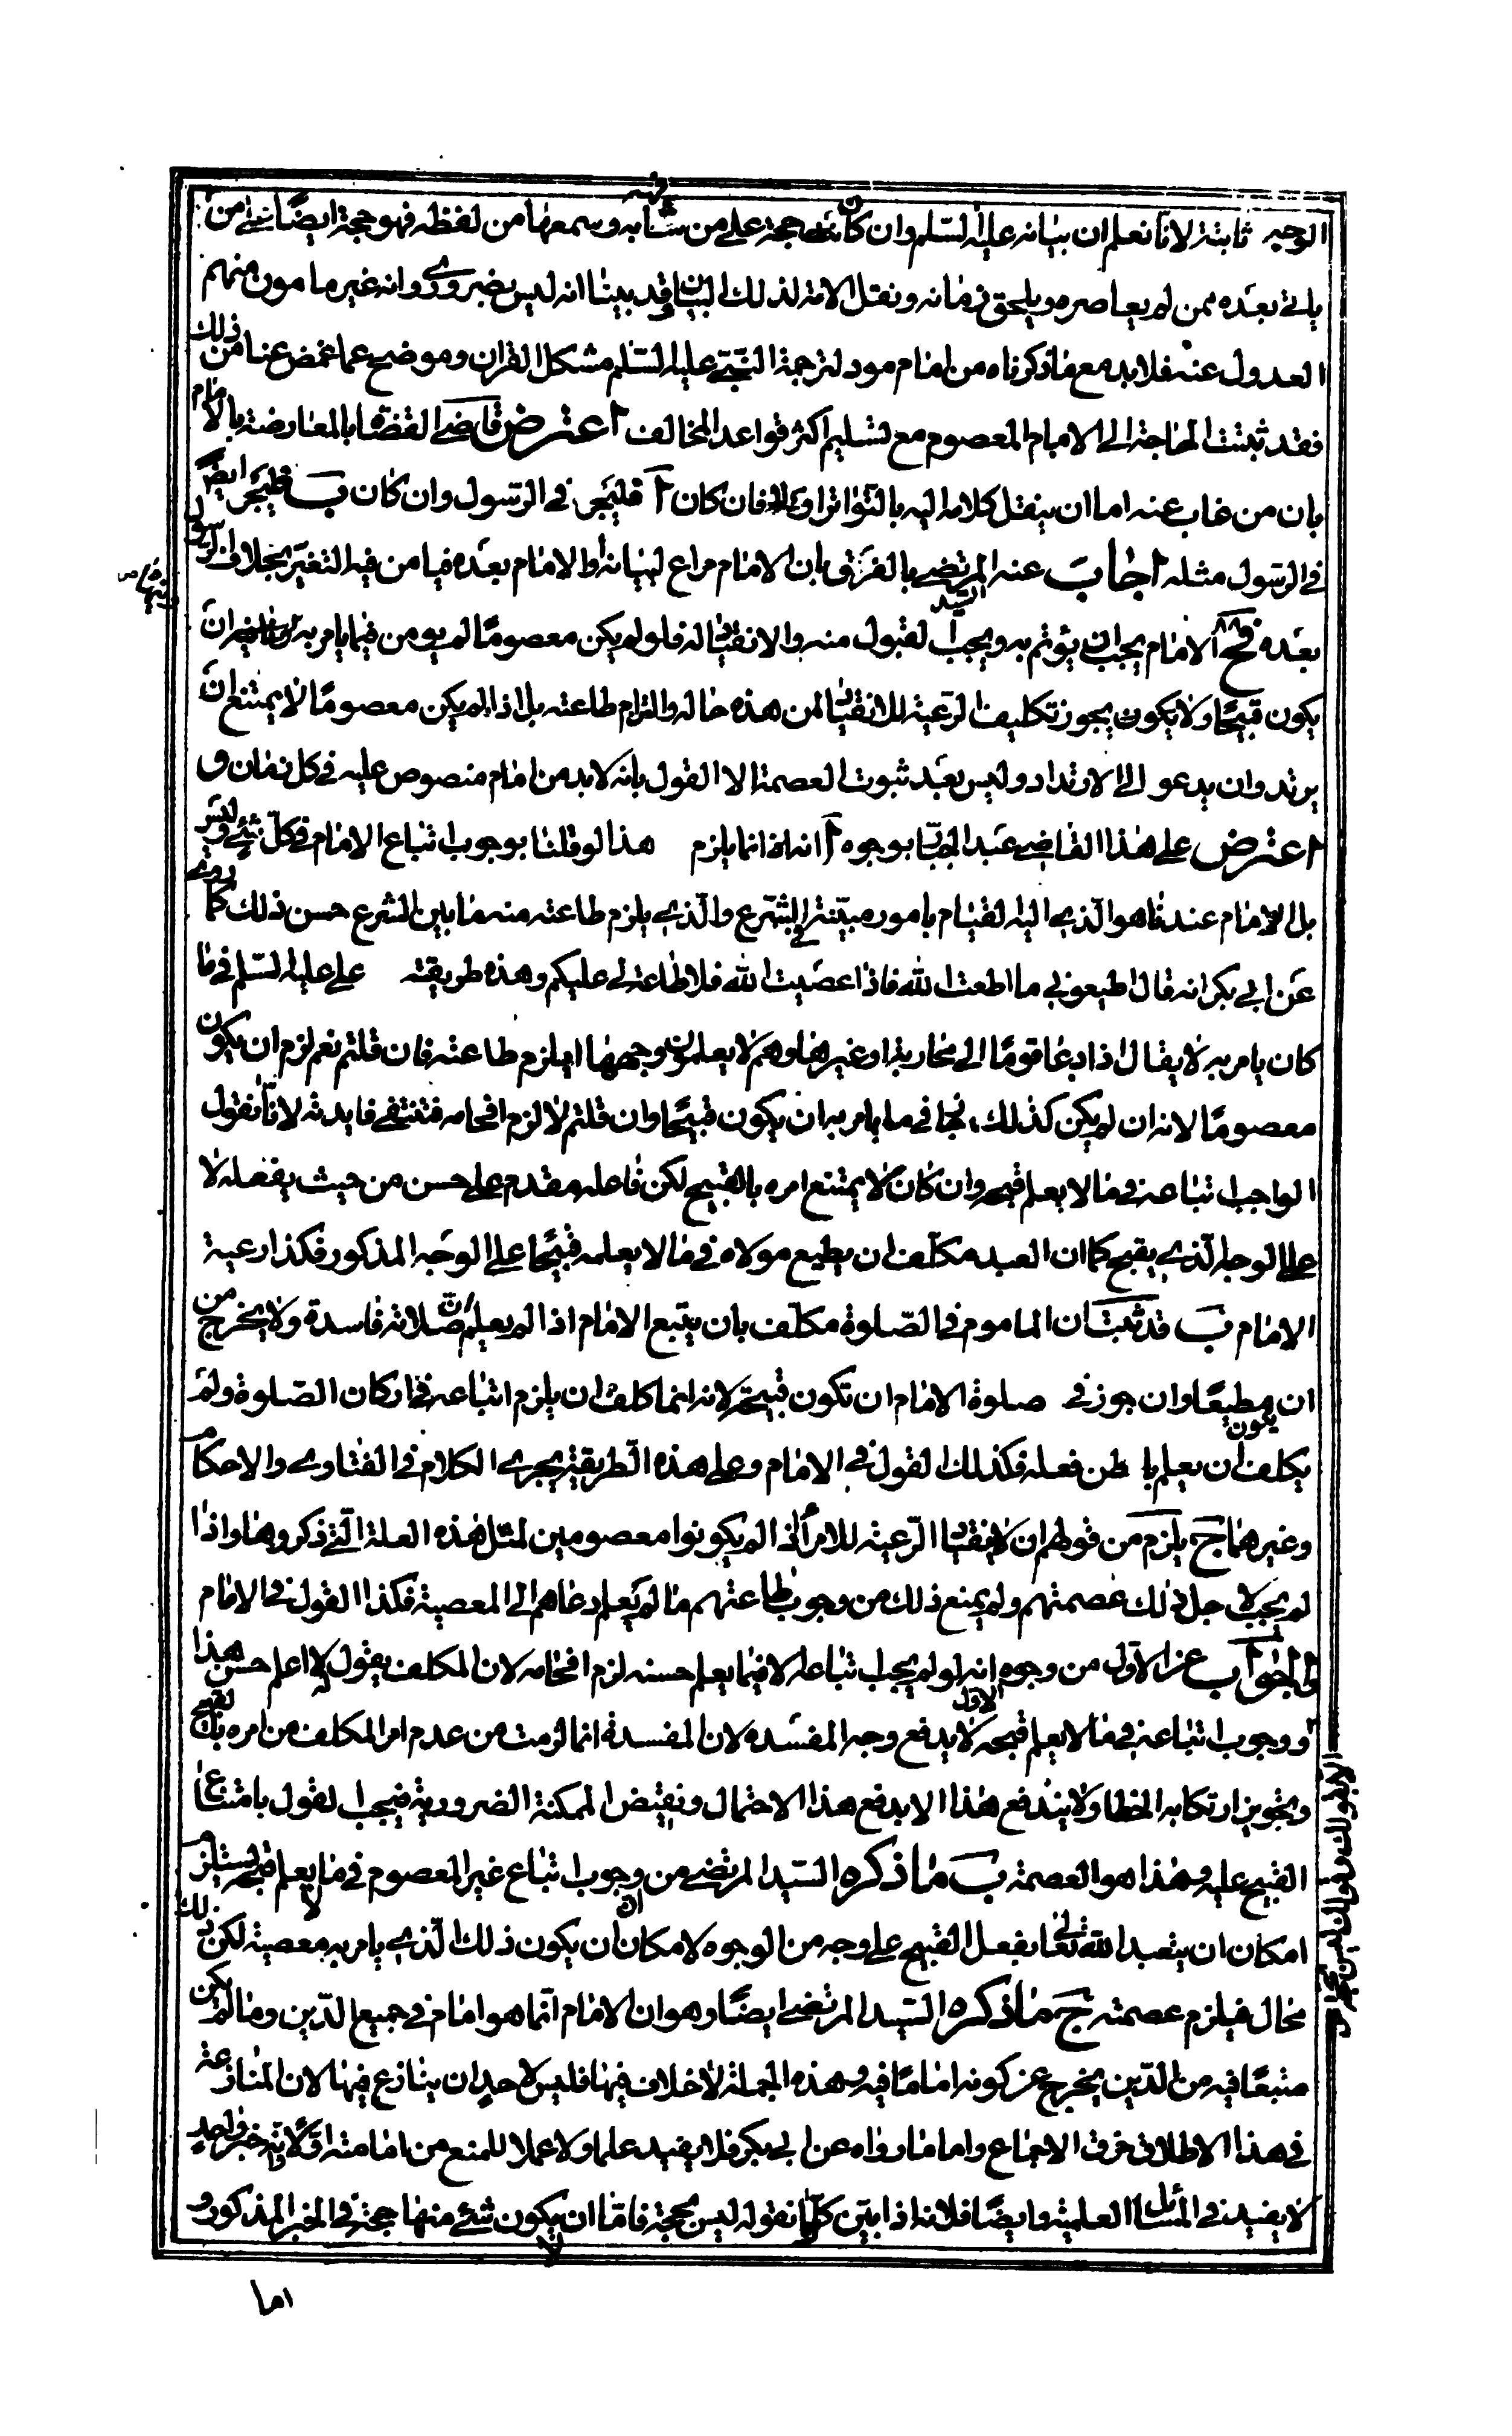 الوجه ثابتة لانا نعلم ان بيانه عليه السلم وان كان حجة على من شافهه به وسمعها من لفظه فهو حجة ايضا على من
ياتي بعده ممن لم يعاصره ويلحق زمانه ونقل الامة لذلك البيان وقد بينا انه ليس بضروري وانه غير مامون منهم
العدول عنه فلا بد مع ما ذكرناه من امام مود لترجمة النبي عليه السلم مشكل القران وموضح عما غمض عنا من ذلك
فقد ثبتت الحاجة الى الامام المعصوم مع تسليم اكثر قواعد المخالف اعترض قاضي القضاة بالمعارضة بالامام
بان من غاب عنه اما ان ينقل كلامه اليه بالتواتر او فان كان آ فليجى في الرسول وان كان ب فليجى ايضا
في الرسول مثله اجاب عنه السيد المرتضى بالفرق بان الامام مراع لبيانه والامام بعده فيامن فيه التغير بخلاف الرسول
بعده الامام يجب ان يؤتم به ويجب القبول منه والانقياد له فلو لم يكن معصوما لم يومن فيما يامر به ان
يكون قبيحا ولا يكون يجوز تكليف الرعية للانقياد لمن هذه حاله والتزام طاعته بل اذا لم يكن معصوما لا يمتنع ان
يرتد وان يدعو الى الارتداد وليس بعد ثبوت العصمة الا القول بانه لا بد من امام منصوص عليه في كل زمان و
اعترض على هذا القاضي عبد الجبار بوجوه آ انه انما يلزم هذا لو قلنا بوجوب اتباع الامام في كل شئ وليس
بل الامام عندنا هو الذي اليه القيام بامور مبينة في الشرع والذي يلزم طاعته منه ما بين الشرع حسن ذلك كما روى
عن ابي بكر انه قال اطيعوني ما اطعت الله فاذا عصيت الله فلا طاعة لي عليكم وهذه طريقة على عليه السلم في ما
كان يامر به لا يقال اذا دعا قوما الى محاربة او غيرها وهم لا يعلمون وجهها ايلزم طاعته فان قلتم نعم لزم ان يكون
معصوما لانه ان لم يكن كذلك، نجا في ما يامر به ان يكون قبيحا وان قلتم لا لزم افحامه فتنتفي فايدته لانا نقول
الواجب اتباعه في ما لا يعلم قبحه وان كان لا يمتنع امره بالقبيح لكن فاعله مقدم على حسن من حيث يفعله لا
على الوجه الذي يقبح كما ان العبد مكلف ان يطيع مولاه في ما لا يعلمه قبيحا على الوجه المذكور فكذا رعية
الامام ب قد ثبت ان الماموم في الصلوة مكلف بان يتبع الامام اذا لم يعلم ان صلاته فاسدة ولا يخرج من
ان يكون مطيعا وان جوز في صلوة الامام ان تكون قبيحة لانه انما كلف ان يلزم اتباعه في اركان الصلوة ولم
يكلف ان يعلم باطن فعله فكذلك القول في الامام وعلى هذه الطريقة يجرى الكلام في الفتاوى والاحكام
وغيرهما ج يلزم من قولهم ان لا ينقاد الرعية للامرآ اذا لم يكونوا معصومين لمثل هذه العلة التي ذكروها واذا
لم يجب لاجل ذلك عصمتهم ولم يمنع ذلك من وجوب طاعتهم ما لم يعلم دعاهم الى المعصية فكذا القول في الامام
والجواب عن الاول من وجوه آ انه لو لم يجب اتباعه الا فيما يعلم حسنه لزم افحامه لان المكلف يقول له لا اعلم حسن هذا
الاول ووجوب اتباعه في ما لا يعلم قبحه لا يدفع وجه المفسدة لان المفسدة انما لزمت من عدم امن المكلف من امره بالقبيح
وتجويز ارتكابه الخطا ولا يندفع هذا الا بدفع هذا الاحتمال ونقيض الممكنة الضرورية فيجب القول بامتناع
القبيح عليه وهذا هو العصمة ب ما ذكره السيد المرتضى من وجوب اتباع غير المعصوم في ما لا يعلم قبحه يستلزم
امكان ان يتعبد الله تعالى بفعل القبيح على وجه من الوجوه لامكان ان يكون ذلك الذي يامر به معصية لكن ذلك
محال فيلزم عصمته ج ما ذكره السيد المرتضى ايضا وهو ان الامام انما هو امام في جميع الدين وما لم يكن
متبعا فيه من الدين يخرج عن كونه اماما فيه وهذه الجملة لا خلاف فيها فليس لاحد ان ينازع فيها لان المنازعة
في هذا الاطلاق خرق الاجماع واما ما رواه عن ابي بكر فلا يفيد علما ولا عملا للمنع من امامته اولا لانه خبر واحد
لا يفيد في المسائل العلمية وايضا فلانه اذا بين كلما نقوله ليس بحجة فاما ان يكون شئ منها حجة في الخبر المذكور و
اما